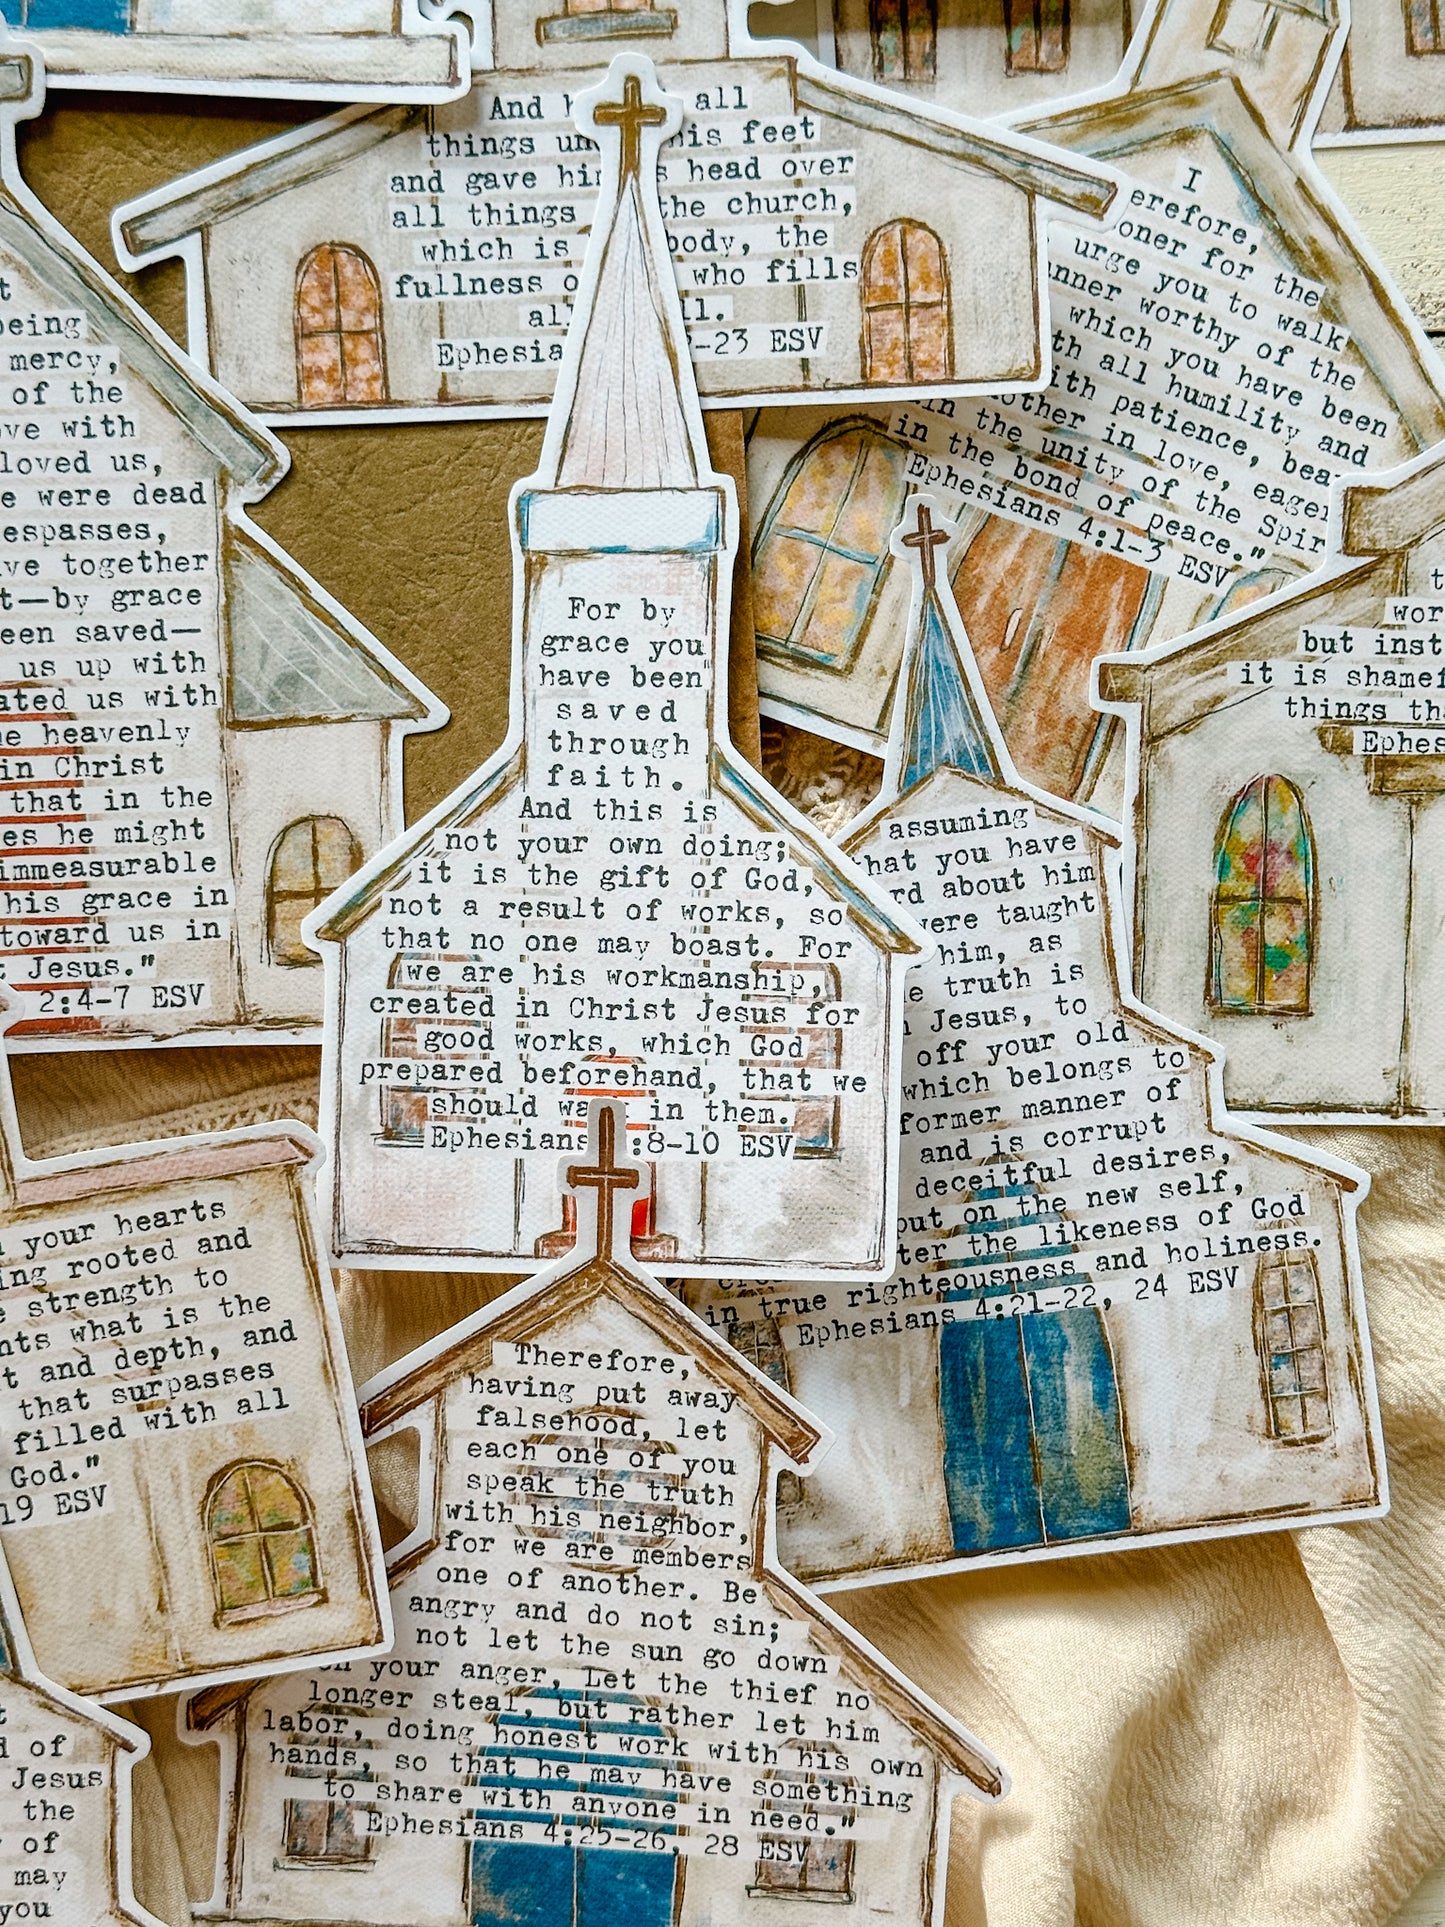 And all
things his feet
and gave head over
all things the church,
which is body, the
fullness who fills
all
23 ESV
I
urge you to walk
worthy of the
which you have been
all humility and
patience,
in love,
in the unity of the
in the bond of peace."
Ephesians 4:1-3 ESV
being
mercy,
of the
with
loved us,
were dead
together
by grace
saved—
us up with
us with
heavenly
in Christ
that in the
he might
immeasurable
his grace in
toward us in
Jesus."
2:4-7 ESV
For by
grace you
have been
saved
through
faith.
And this is
not your own doing;
it is the gift of God,
not a result of works, so
that no one may boast. For
we are his workmanship,
created in Christ Jesus for
good works, which God
prepared beforehand, that we
should in them.
Ephesians :8-10 ESV
assuming
that you have
about him
were taught
him, as
truth is
Jesus, to
off your old
which belongs to
former manner of
and is corrupt
deceitful desires,
put on the new self,
the likeness of God
in true righteousness and holiness.
Ephesians 4:21-22, 24 ESV
but
it is
things
your hearts
rooted and
strength to
what is the
and depth, and
that surpasses
filled with all
God."
19 ESV
Therefore,
having put away
falsehood, let
each one of you
speak the truth
with his neighbor,
for we are members
one of another. Be
angry and do not sin;
not let the sun go down
your anger, Let the thief no
longer steal, but rather let him
labor, doing honest work with his own
hands, so that he may have something
to share with anyone in need."
Ephesians 4:25-26, 28 ESV
of
Jesus
the
of
may
you